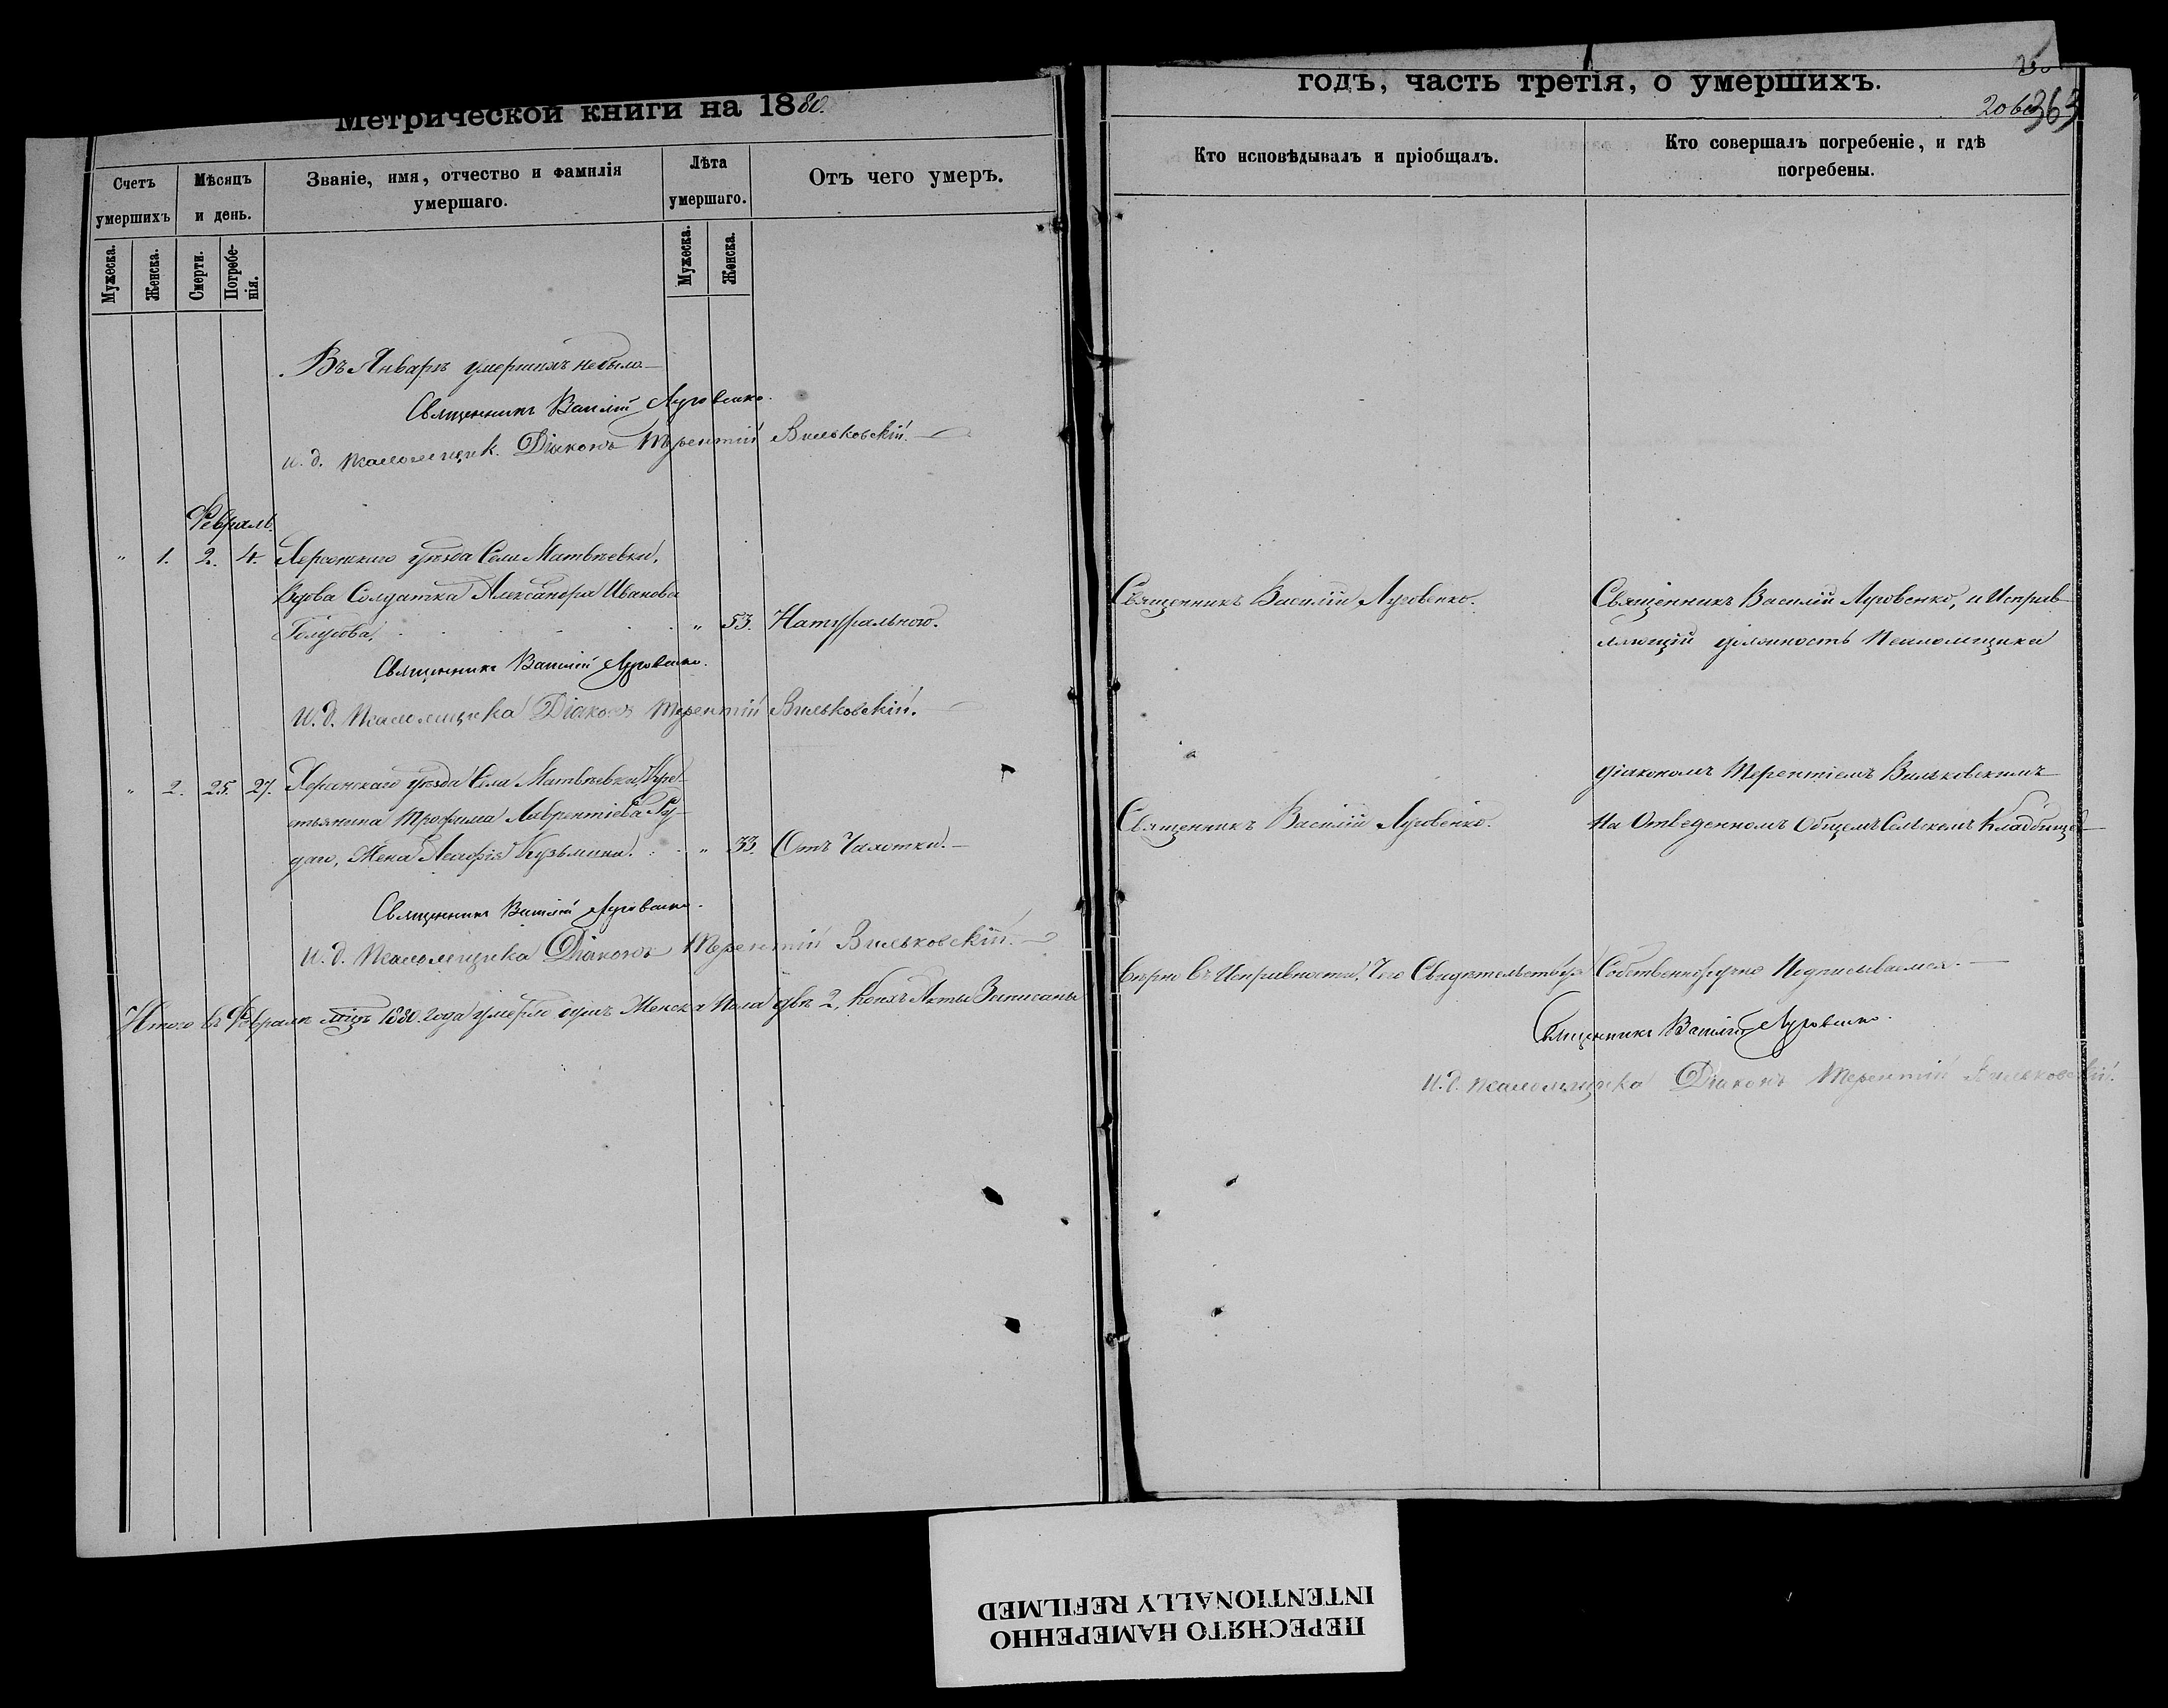 Метрической книги на 1880.
Счетъ умершихъ
Мѣсяцъ и день.
Званіе, имя, отчество и фамилія умершаго.
Лѣта умершаго.
Отъ чего умеръ.
Мужеска.
Женска.
Смерти.
Погребенія.
Мужеска.
Женска.
Въ Январѣ умершихъ небыло
Священникъ Василій Луговенко.
и. д. псаломщик. Діаконъ Терентій Вильковскій.
Февраль.
" 1. 2. 4. Херсонскаго уѣзда Села Матвѣевки,
Вдова Солдатка Александра Иванова
" 53. Натуральною.
Священникъ Василій Луговенко.
И. д. Псаломщика Діаконъ Терентій Вильковскій.
" 2. 25. 27. Херсонскаго уѣзда Села Матвѣевки, Кре-
стьянина Трофима Лаврентіева
Жена Кузьмина. " 33. Отъ Чахотки.
Священникъ Василій Луговенко.
и. д. Псаломщика Діаконъ Терентій Вильковскій.
Итого въ Февралѣ мѣцѣ 1880. года умерло душъ Женска Пола двѣ 2, Коихъ Акты Записаны
годъ, часть третія, о умершихъ.
363
Кто исповѣдывалъ и пріобщалъ.
Кто совершалъ погребеніе, и гдѣ погребены.
Священникъ Василій Луговенко.
Священникъ Василій Луговенко, и Исправ-
ляющій должность Псаломщика
діакономъ Терентіемъ Вильковскимъ
Священникъ Василій Луговенко.
На Отведенномъ Общемъ Сельскомъ Кладбищѣ
Вѣрно въ Исправности, Чего Свидѣтельствуя Собственноручно Подписываемся.
Священникъ Василій Луговенко.
И. д. псаломщика Діаконъ Терентій Вильковскій.
ПЕРЕСНЯТО НАМЕРЕННО
INTENTIONALLY REFILMED